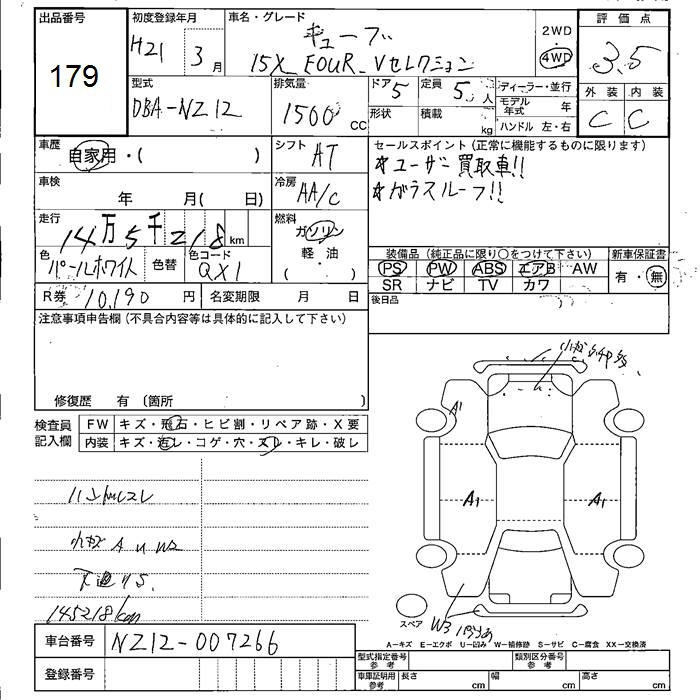 出品番号
179
初度登録年月
H21 3月
車名・グレード
キューブ
15X FOUR Vセレクション
2WD
4WD
評価点
3.5
型式
DBA-NZ12
排気量
1500 CC
ドア 5
定員 5人
形状
積載 kg
ディーラー・並行
モデル年式 年
ハンドル 左・右
外装 内装
C C
車歴
自家用・( )
シフト AT
セールスポイント (正常に機能するものに限ります)
★ユーザー買取車!!
★ガラスルーフ!!
車検
年 月( 日)
冷房 AA/C
走行
14万5千218km
燃料
ガソリン
軽・油
( )
色
パールホワイト
色替
色コード
QX1
装備品 (純正品に限り〇をつけて下さい)
新車保証書
PS PW ABS エアB AW
SR ナビ TV カワ
有・無
R券 10,190円
名変期限 月 日
後日品
注意事項申告欄 (不具合内容等は具体的に記入して下さい)
修復歴 有 (箇所 )
検査員記入欄
FW キズ・飛石・ヒビ割・リペア跡・X要
内装 キズ・汚レ・コゲ・穴・スレ・キレ・破レ
145218km
A1
A1
A1
W3
スペア
A-キズ E-エクボ U-凹み W-補修跡 S-サビ C-腐食 XX-交換済
車台番号
NZ12-007266
登録番号
型式指定番号 参考
類別区分番号 参考
車庫証明用 参考
長さ cm
幅 cm
高さ cm